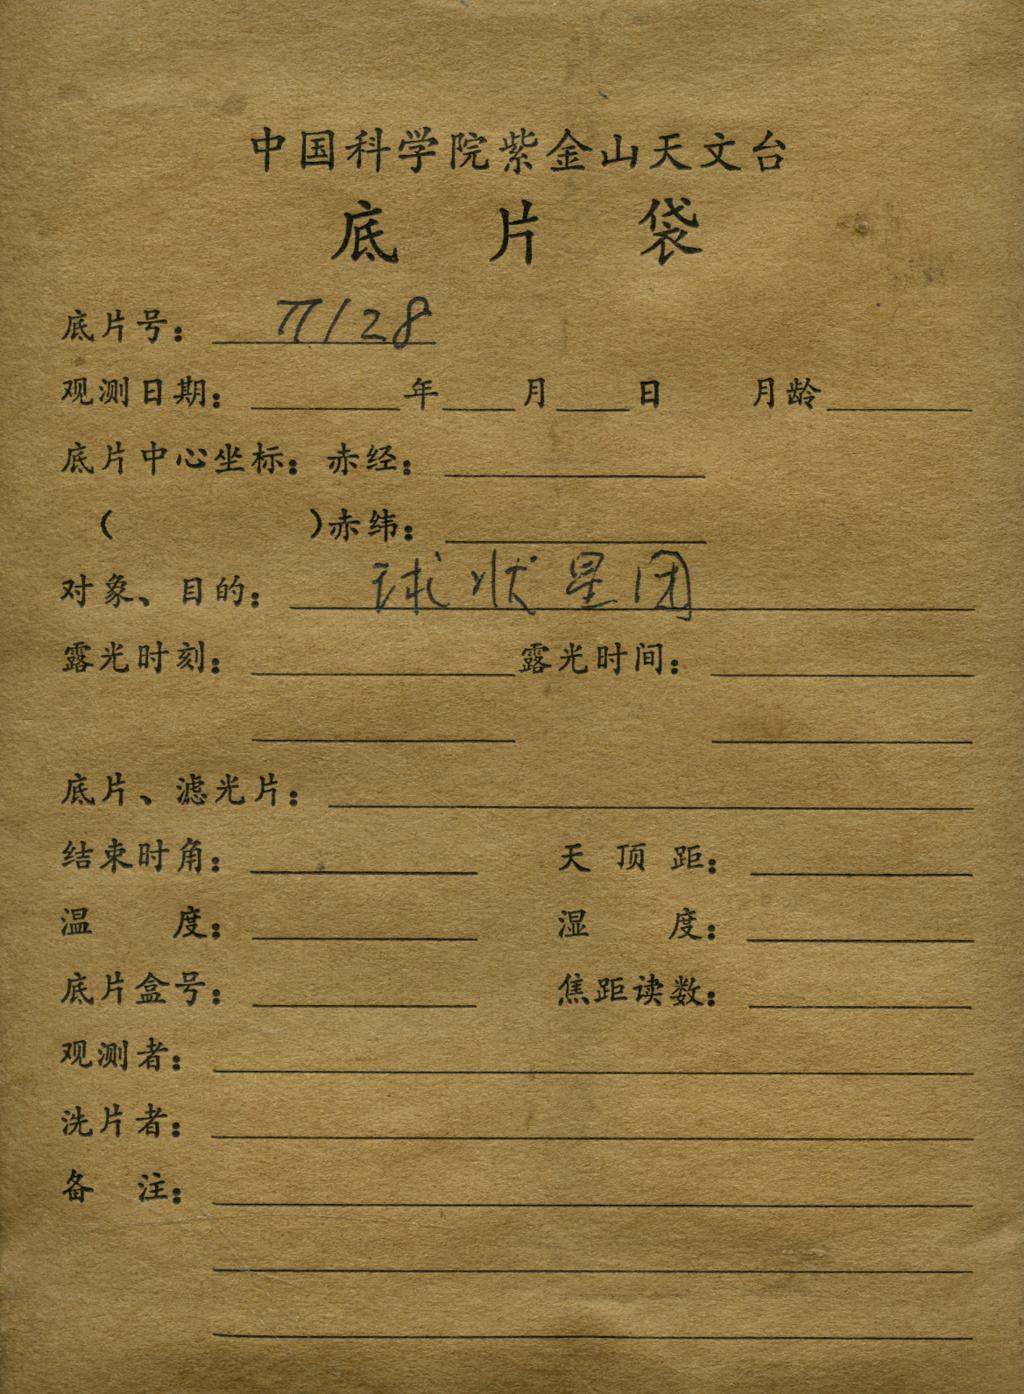 中国科学院紫金山天文台
底片袋
底片号： π128
观测日期： 年 月 日 月龄
底片中心坐标：赤经：
（ ）赤纬：
对象、目的： 球状星团
露光时刻： 露光时间：
底片、滤光片：
结束时角： 天顶距：
温度： 湿度：
底片盒号： 焦距读数：
观测者：
洗片者：
备注：